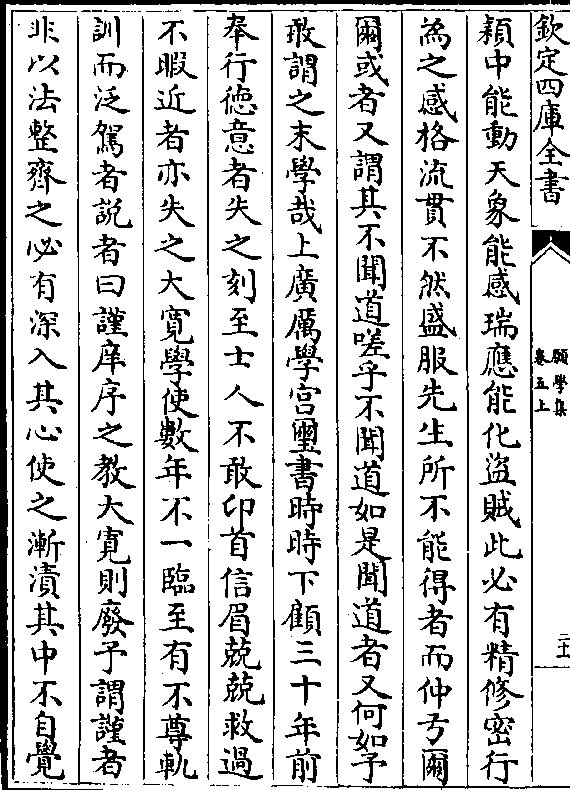 欽定四庫全書
願學集
卷五上
潁中能動天象能感瑞應能化盜賊此必有精修密行
為之感格流貫不然盛服先生所不能得者而仲弓爾
爾或者又謂其不聞道嗟乎不聞道如是聞道者又何如予
敢謂之末學哉上廣厲學宫璽書時時下顧三十年前
奉行徳意者失之刻至士人不敢卬首信眉兢兢救過
不暇近者亦失之大寛學使數年不一臨至有不尊軌
訓而泛駕者說者曰謹庠序之教大寛則廢予謂謹者
非以法整齊之必有深入其心使之漸漬其中不自覺